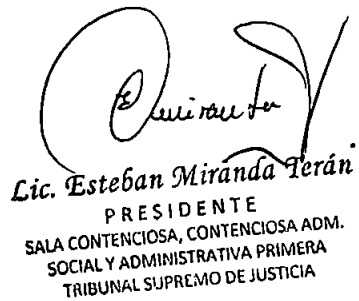 Lic. Esteban Miranda Terán
PRESIDENTE
SALA CONTENCIOSA, CONTENCIOSA ADM.
SOCIAL Y ADMINISTRATIVA PRIMERA
TRIBUNAL SUPREMO DE JUSTICIA